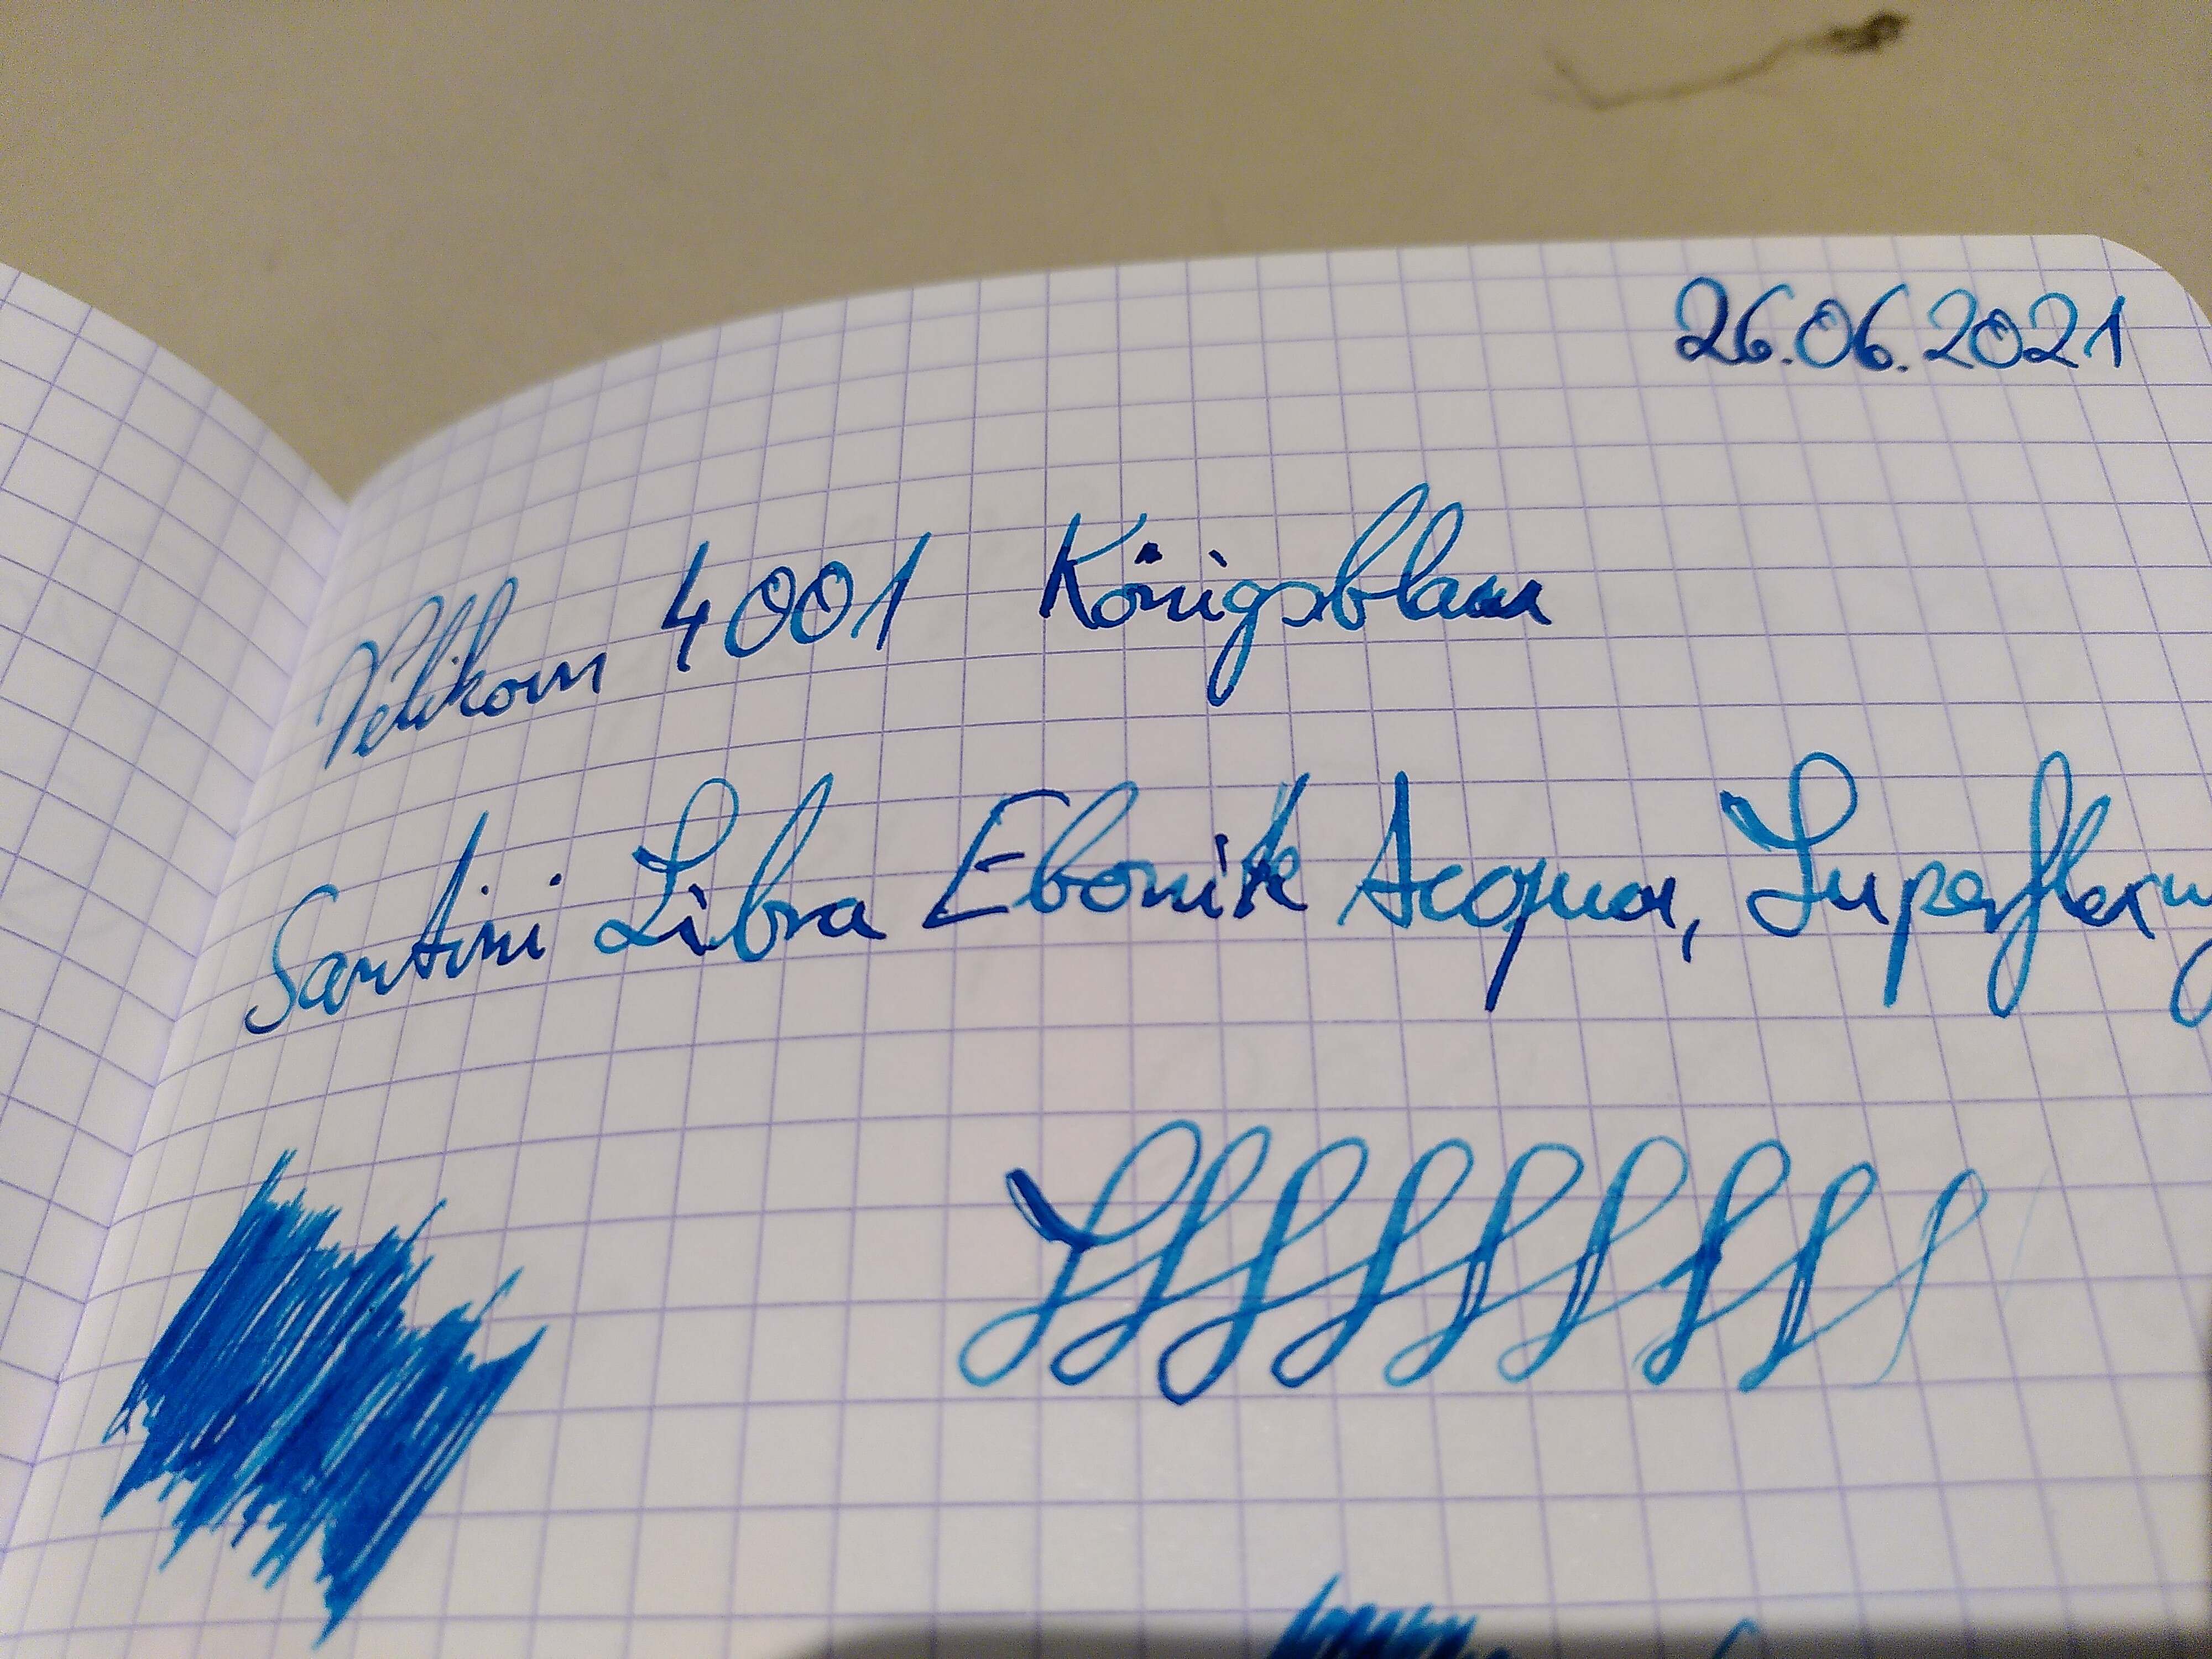 26.06.2021
Pelikan 4001 Königsblau
Santini Libra Ebonite Acqua, Superflexy